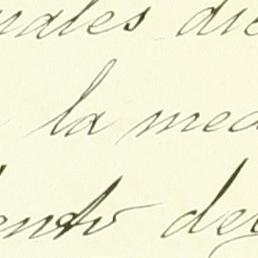 uales die
la med
iento de